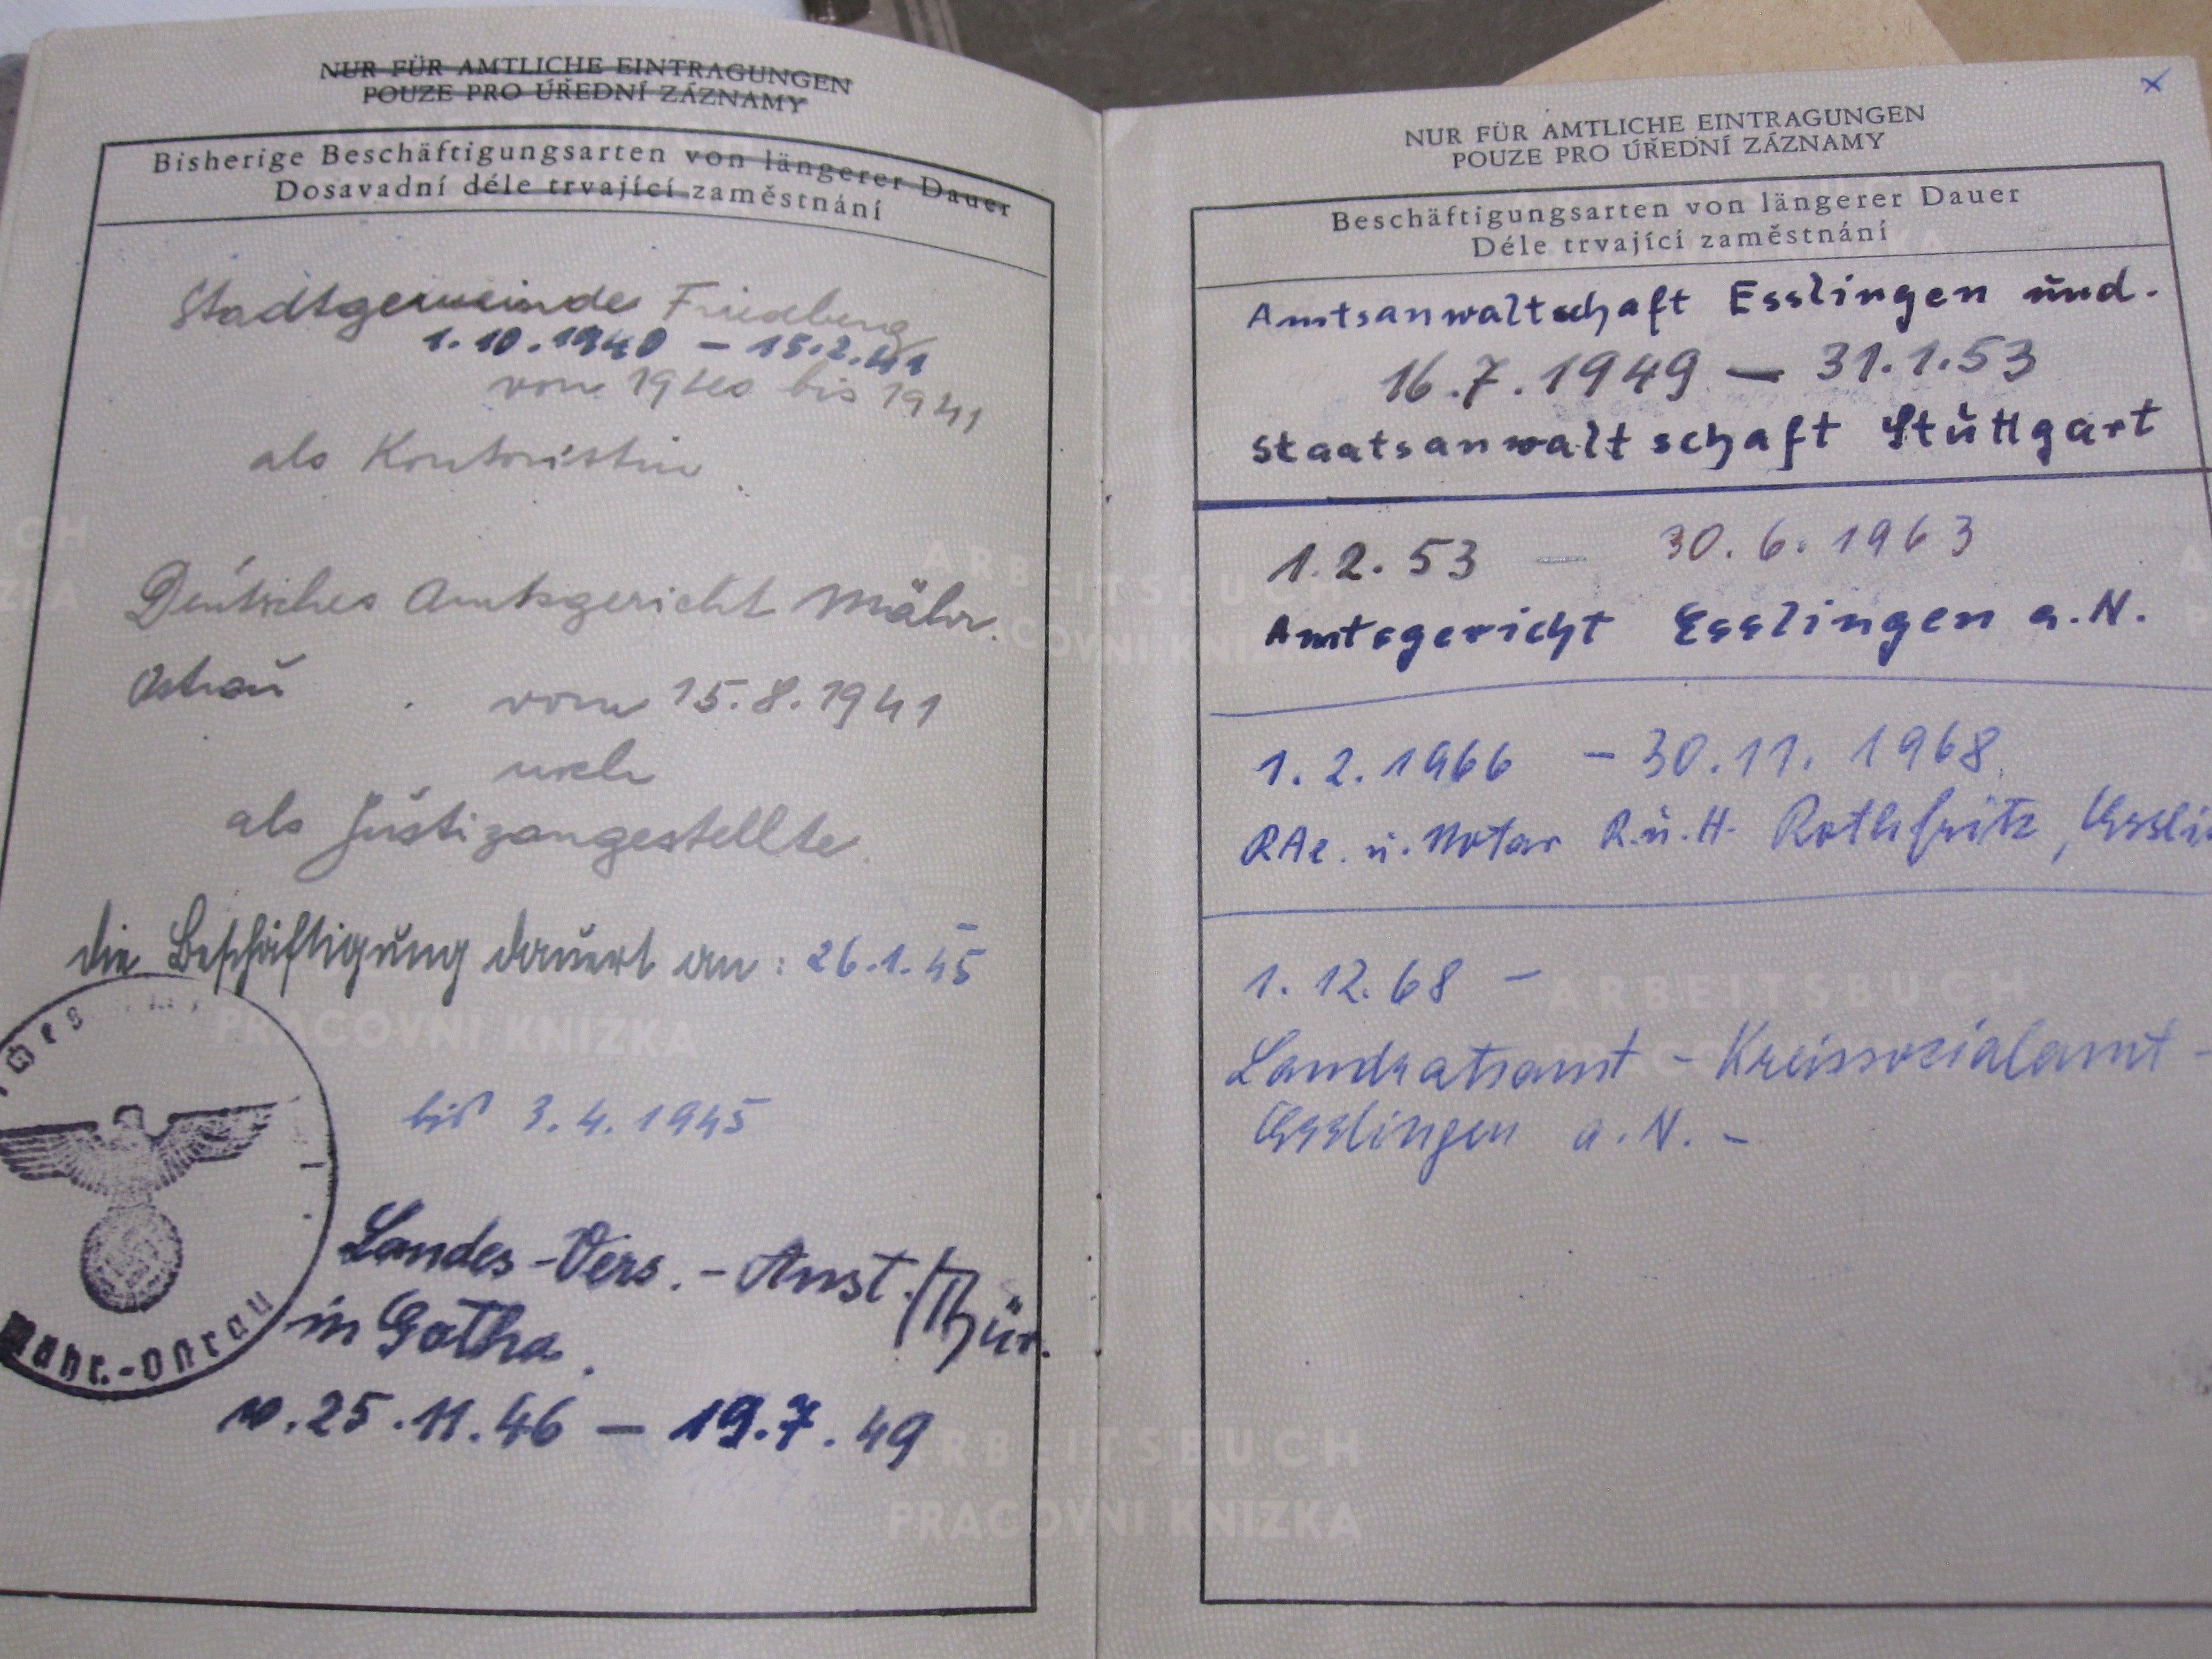 NUR FÜR AMTLICHE EINTRAGUNGEN
POUZE PRO ÚŘEDNÍ ZÁZNAMY
Bisherige Beschäftigungsarten von längerer Dauer
Dosavadní déle trvající zaměstnání
Stadtgemeinde Friedberg
1.10.1940 – 15.2.41
von 1940 bis 1941
als Kontoristin
Deutsches Amtsgericht Mähr.
Ostrau von 15.8.1941
als Justizangestellte.
die Beschäftigung dauert an: 26.1.45
bis 3.4.1945
Mähr.-Ostrau
Landes-Vers.-Anst./Thür.
in Gotha.
v. 25.11.46 – 19.7.49
ARBEITSBUCH
PRACOVNI KNIZKA
x
NUR FÜR AMTLICHE EINTRAGUNGEN
POUZE PRO ÚŘEDNÍ ZÁZNAMY
Beschäftigungsarten von längerer Dauer
Déle trvající zaměstnání
Amtsanwaltschaft Esslingen und.
16.7.1949 – 31.1.53
Staatsanwaltschaft Stuttgart
1.2.53 – 30.6.1963
Amtsgericht Esslingen a.N.
1.2.1966 – 30.11.1968
RAe. u. Notar R. u. H. Rothfritz, Essli
1.12.68 –
Landratsamt - Kreissozialamt -
Esslingen a.N. –
ARBEITSBUCH